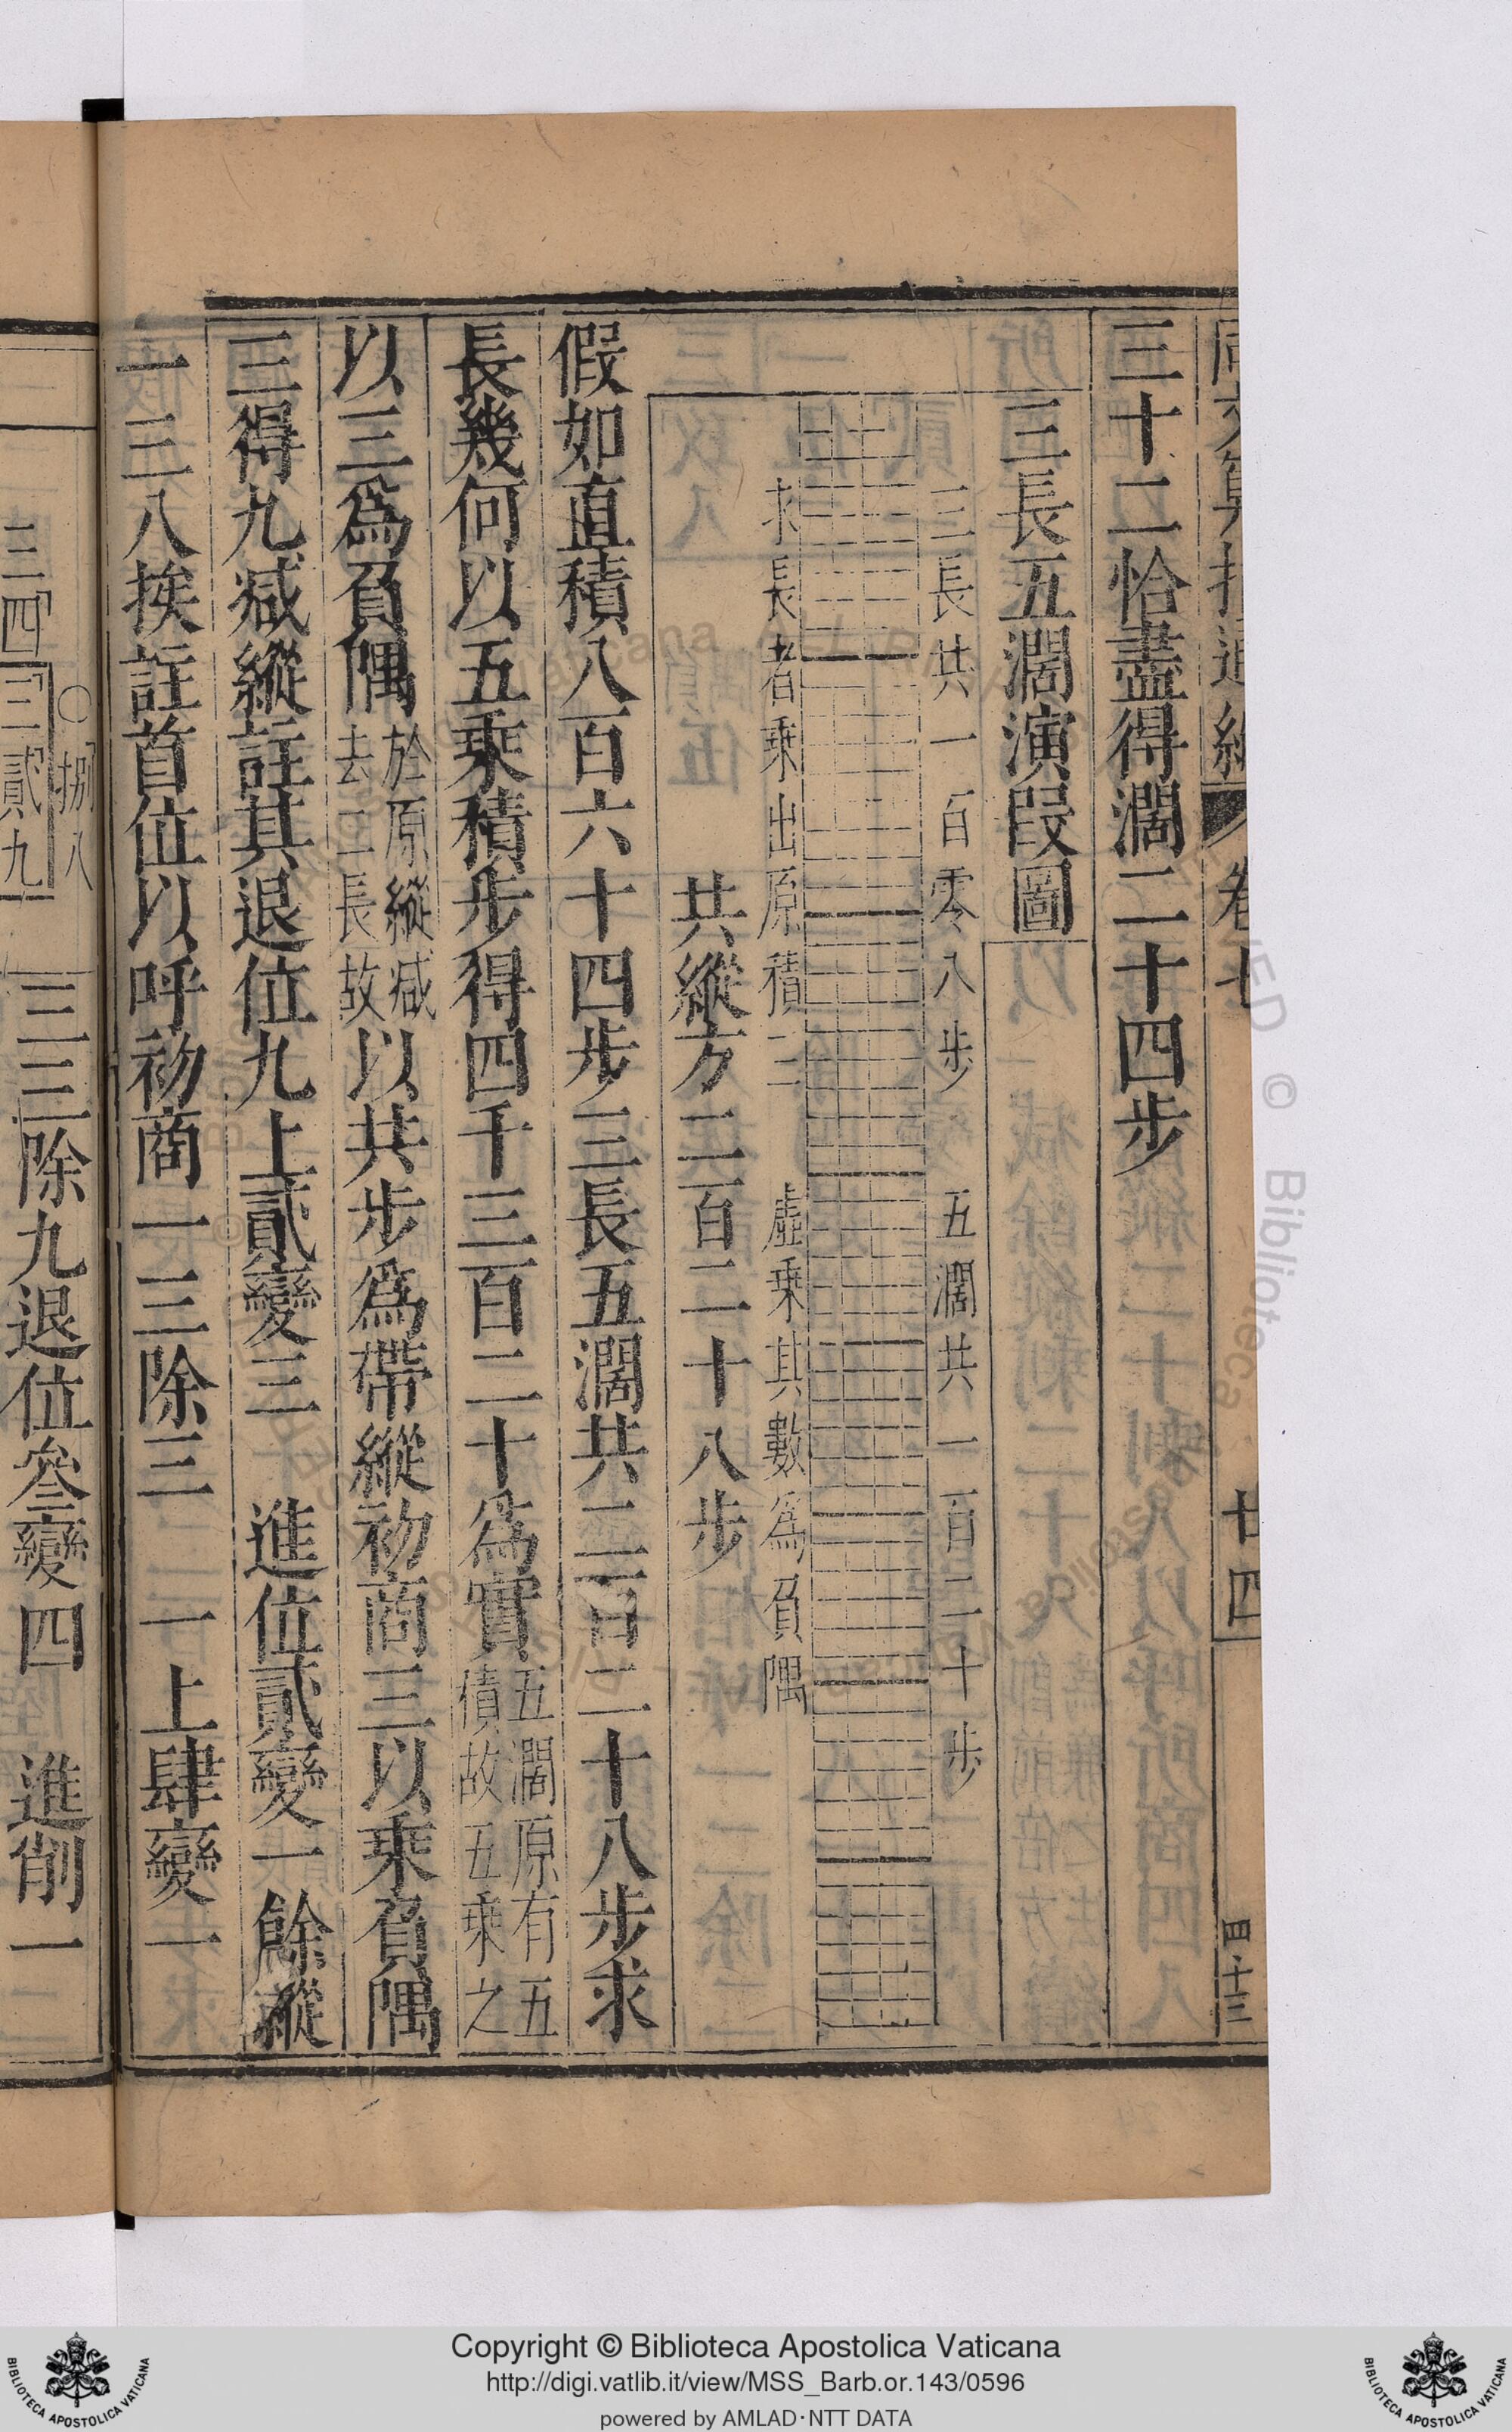 三十二恰盡得濶二十四步
三長五濶演段圖
三長共一百零八步　五濶共一百二十步
求長者乘出原積三　虛乘其數為負隅
共縱方二百二十八步
假如直積八百六十四步三長五濶共二百二十八步求
長幾何以五乘積步得四千三百二十為實五濶原有五
積故五乘之
以三爲負隅於原縱減
去三長故以共步爲帶縱初商三以乘負隅
三得九減縱註其退位九上貳變三　進位貳變一餘縱
一三八挨註首位以呼初商一三除三　一上肆變一
卷七
廿四
四十三
〇捌八
三四三貳九
三三除九退位叄變四　進削一
Copyright © Biblioteca Apostolica Vaticana
http://digi.vatlib.it/view/MSS_Barb.or.143/0596
powered by AMLAD·NTT DATA
BIBLIOTECA APOSTOLICA VATICANA
BIBLIOTECA APOSTOLICA VATICANA